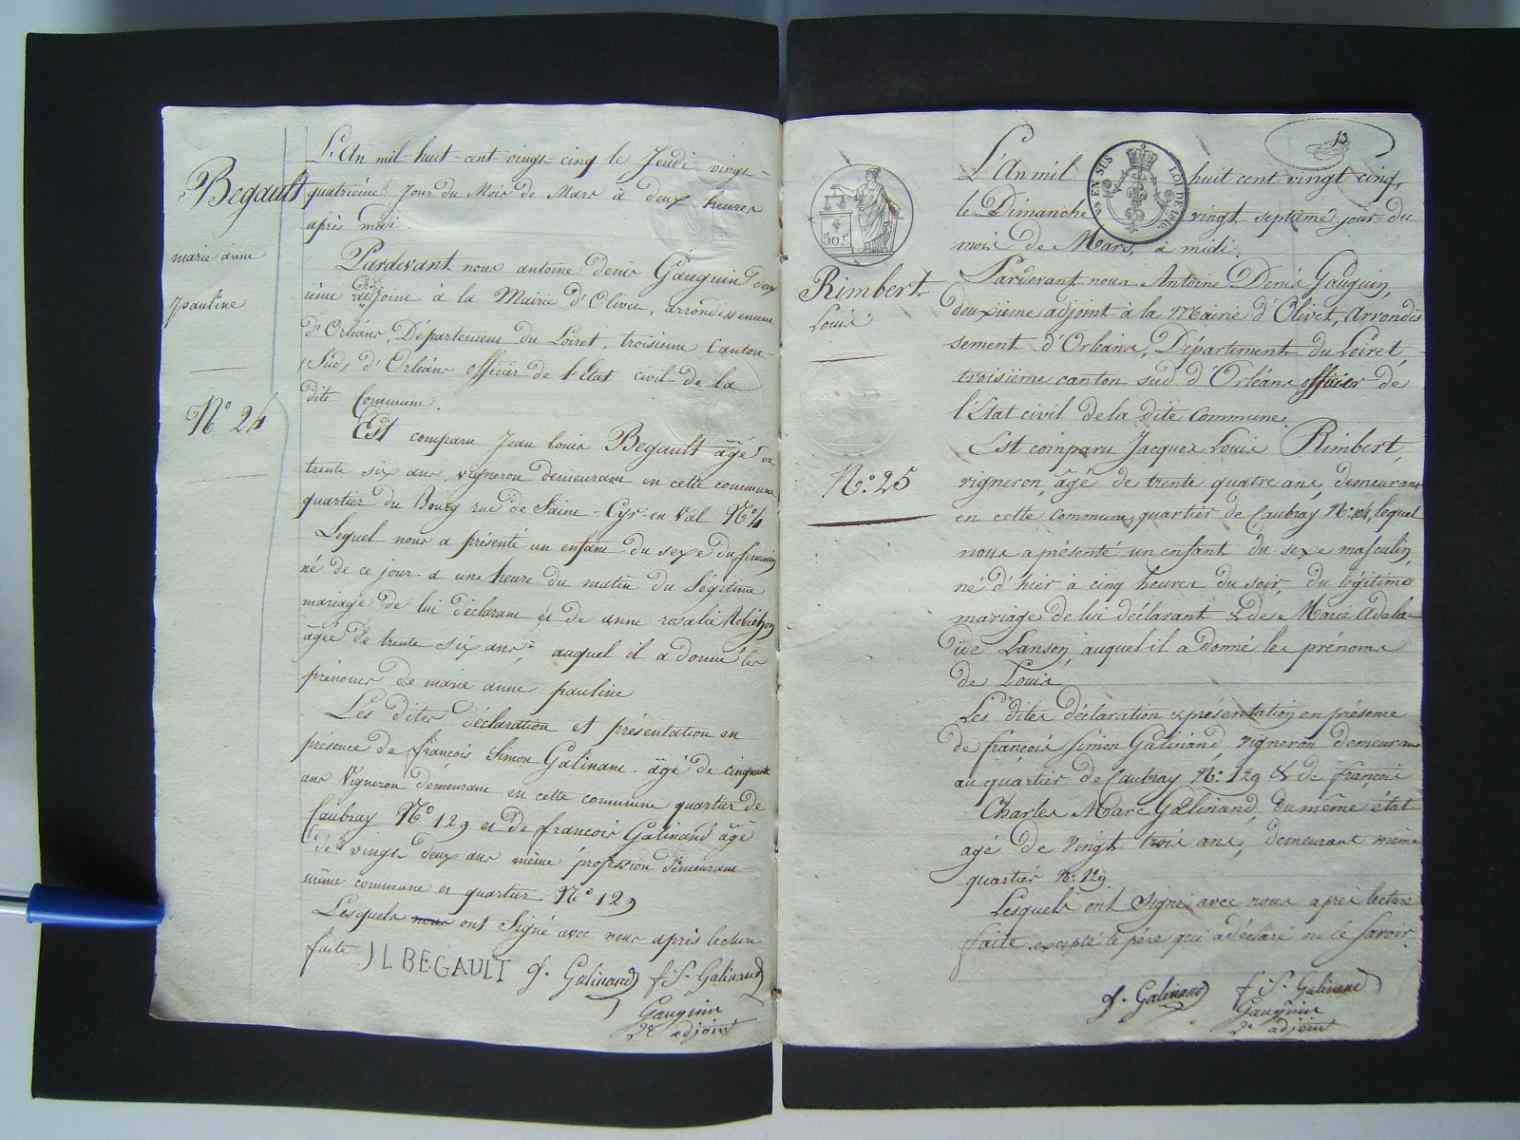 Begault
marie anne
pauline
N.° 24
L'An mil huit-cent vingt-cinq le Jeudi vingt-
quatrième Jour du Mois de Mars à deux heures
après midi.
Pardevant nous antoine denis Gauguin deux
ième adjoint à la Mairie d'Olivet, arrondissement
d'Orléans, Département du Loiret, troisième Canton
Sud, d'Orléans officier de l'État civil de la
dite Commune.
Est comparu Jean louis Begault âgé de
trente six ans, vigneron demeurant en cette commune
quartier du Bourg rue de Saint-Cyr-en Val N.° 4
Lequel nous a présenté un enfant du sexe du féminin
né de ce jour à une heure du matin du Légitime
mariage de lui déclarant et de anne rosalie
âgée de trente six ans, auquel il a donné les
prénoms de marie anne pauline
Les dites déclaration et présentation en
présence de françois Simon Galinant âgé de cinquante
ans Vigneron demeurant en cette commune quartier de
Caubray N.° 129 et de françois Galinand âgé
de vingt deux ans même profession demeurant
même commune et quartier N.° 129
Lesquels nous ont Signé avec nous après lecture
faite J L BEGAULT f. Galinand f. S. Galinand
Gauguin
2e adjoint
13
EN SUS
LOI DE 1816
50 c
Rimbert
Louis
N.° 25
L'An mil huit cent vingt cinq,
le Dimanche vingt septième jour du
mois de Mars, à midi.
Pardevant nous Antoine Denis Gauguin,
deuxième adjoint à la Mairie d'Olivet, Arrondis
sement d'Orléans, Département du Loiret,
troisième canton sud d'Orléans officier de
l'État civil de la dite Commune.
Est comparu Jacques Louis Rimbert,
vigneron, âgé de trente quatre ans, demeurant
en cette Commune, quartier de Caubray N.° 104, lequel
nous a présenté un enfant du sexe masculin,
né d'hier à cinq heures du soir, du légitime
mariage de lui déclarant & de Marie Adela-
ide Lanson, auquel il a donné les prénoms
de Louis
Les dites déclaration & présentation en présence
de françois Simon Galinand, vigneron demeurant
au quartier de Caubray N.° 129 & de françois
Charles Marc Galinand, du même état
agé de vingt trois ans, demeurant même
quartier N.° 129.
Lesquels ont signé avec nous après lecture
faite excepté le père qui a déclaré ne le savoir.
f. Galinand f. S. Galinand
Gauguin
2e adjoint